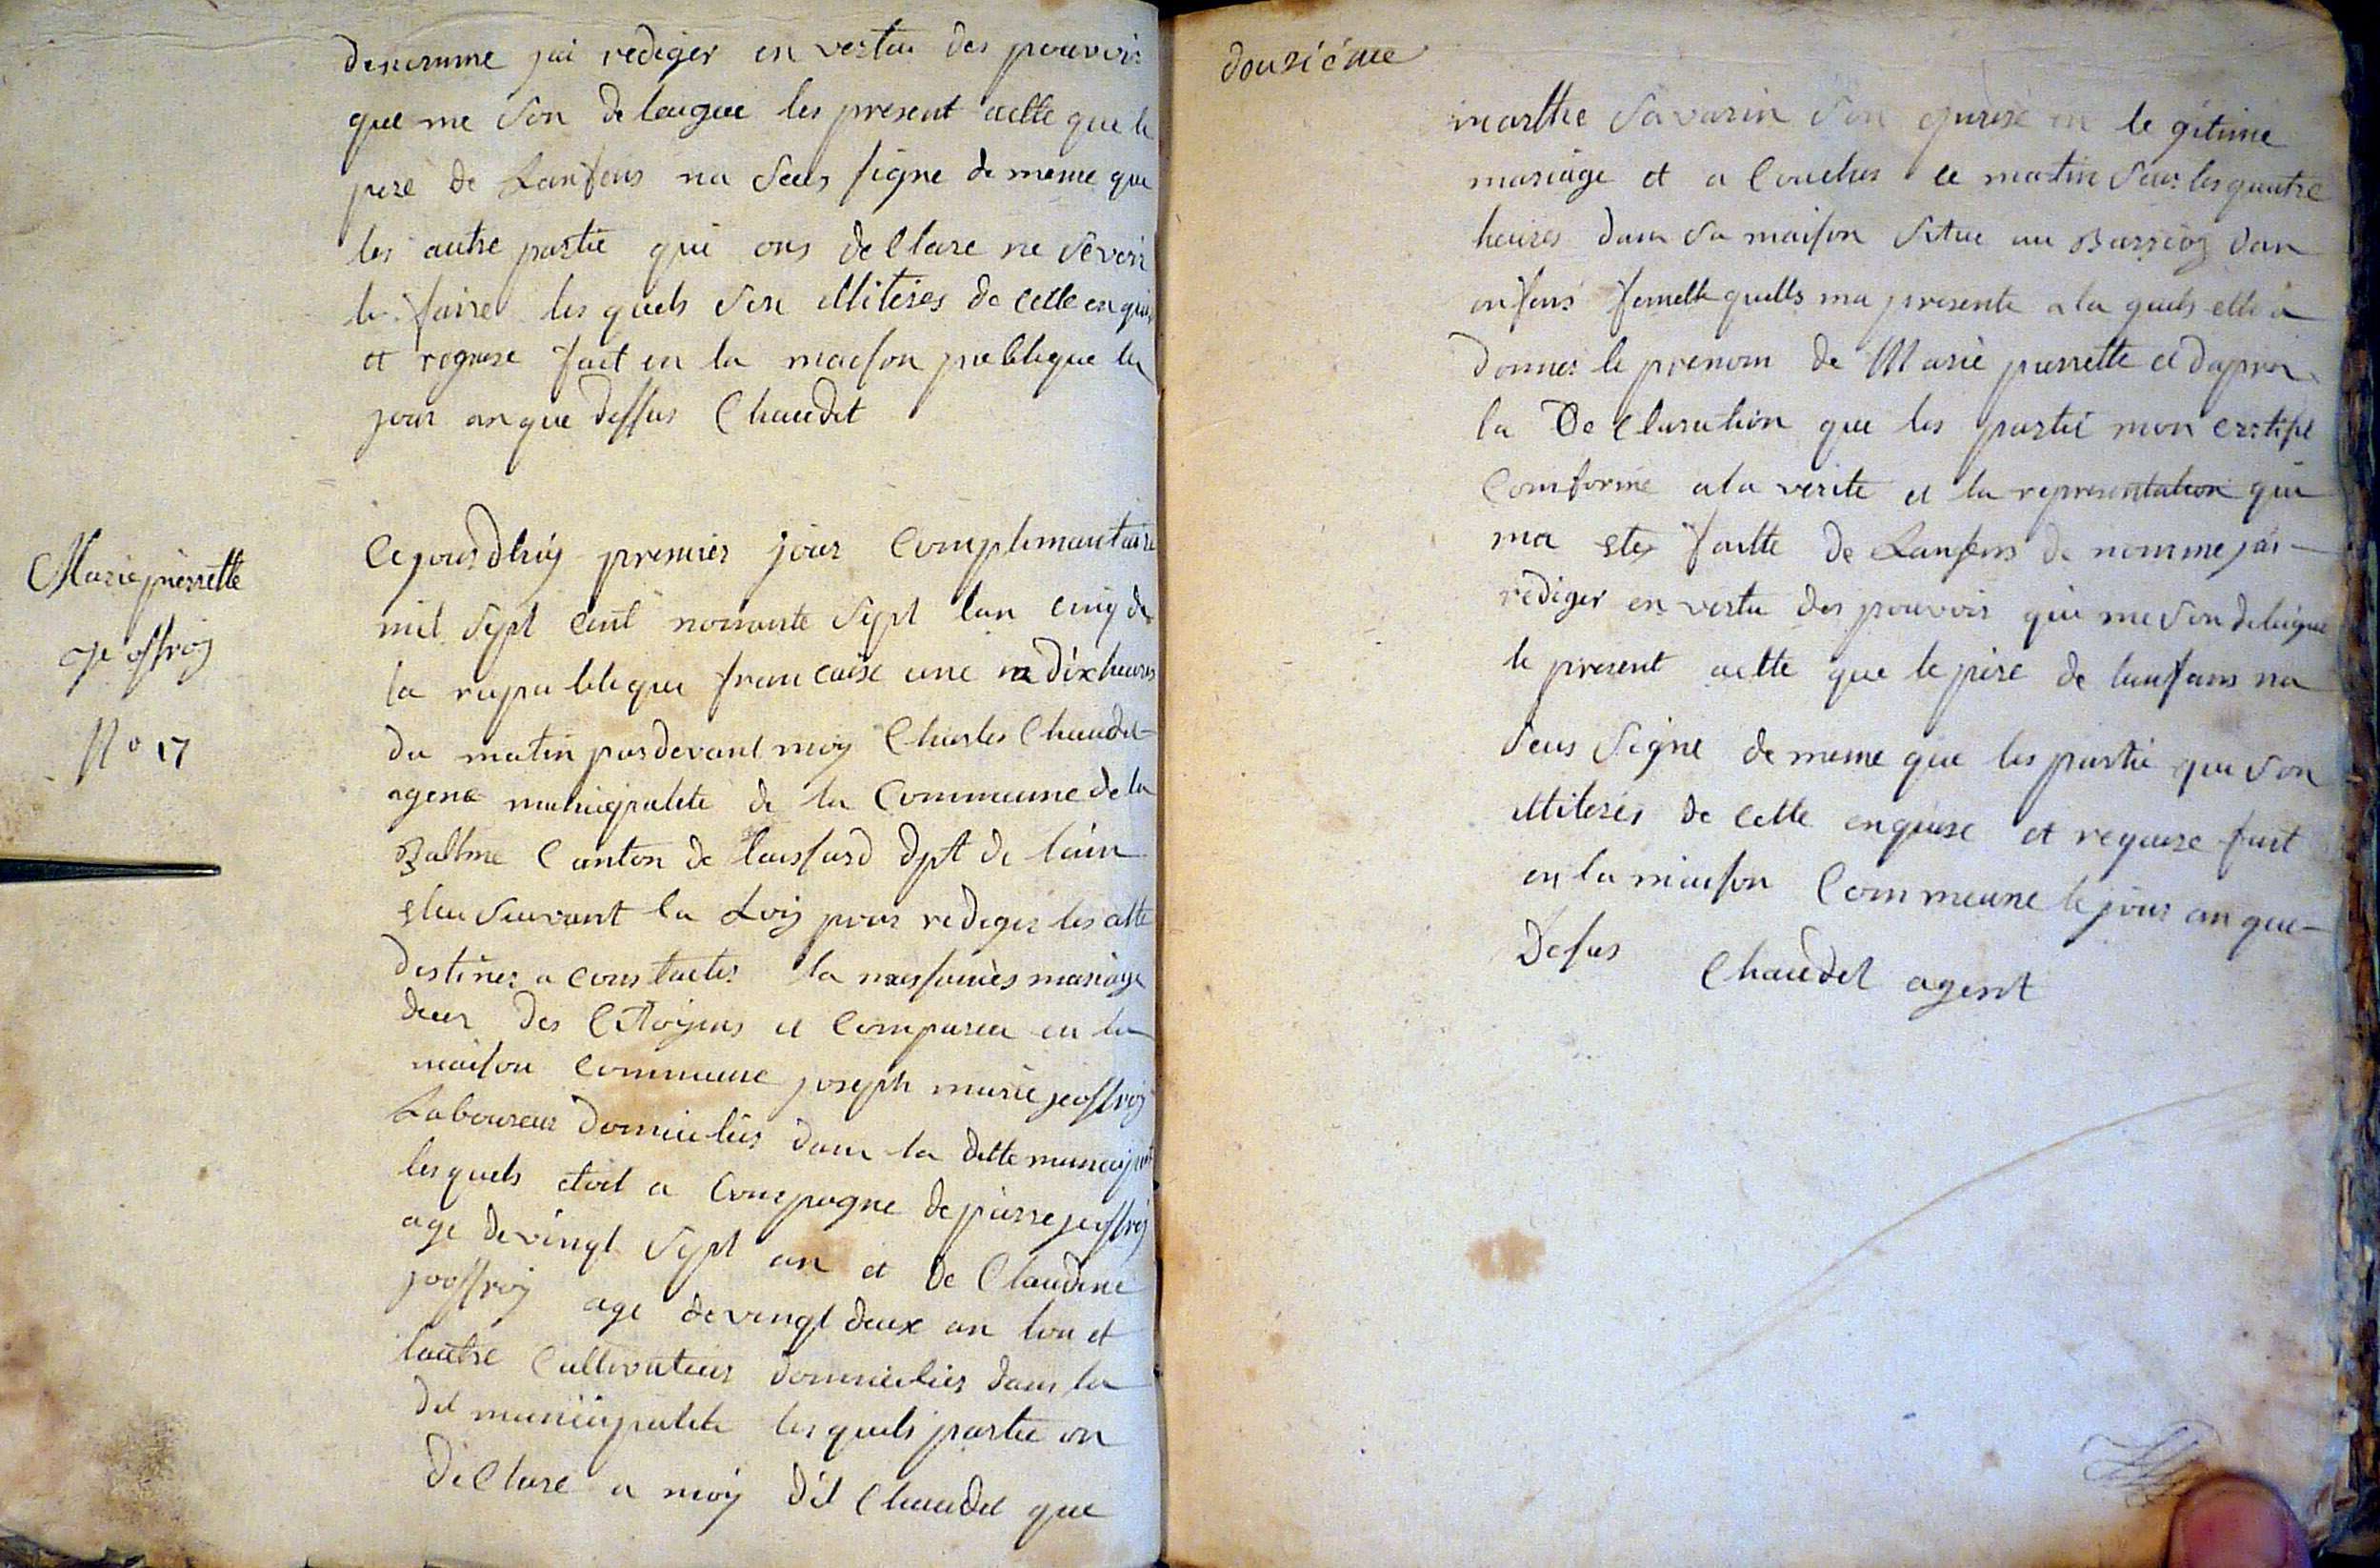 denomme jai rediger en vertue des pouvoir
que me son delengue les present actte que le
pere de Lanfens na seus signe de meme que
les autre partie qui ons declare ne sèvoir
le faire les quels son illiteres de cette enquis
et requise fait en la maison publique le
jour an que dessus Chaudet
Marie pierrette
Jeoffroy
No 17
Cejourdhuy premier jour Complimantaire
mil sept cent nonante sept lan cinq de
la republique francaise une in dix heures
du matin pardevant moy Charles Chaudet
agent municipalite de la Commeune de la
Balme Canton de
dpt de lain
eleu suivant la Loy pour rediger les actte
destiner a constacter la naissances mariage
deces des Citoyens et Comparu en la
maison Commeune joseph marie jeoffroy
Laboureur domicilier dans la ditte municipal
les quels etoit a Compagne de pierre jeoffroy
age de vingt sept an et de Claudine
jeoffroy age de vingt deux an lun et
lautre Cultivateur domicilier dans la
dit municipalite les quels partie on
declare a moy dit Chaudet que
douzième
marthe Savarin son epouse en legitime
mariage et a Coucher ce matin sur les quatre
heures dans sa maison situe au dun
enfens femelle quells ma presente a la quels elle a
donner le prenom de Marie pierrette et dapres
la Declaration que les partie mon certifie
Comforme ala verite et la representation qui
ma etez faitte de Lanfens denomme jai
rediger en vertu des pouvoir que me son delengue
le present actte que le père de lanfans na
seus signe de meme que les partie que son
illiteres de cette enquise et requise fait
en la maison Commeune le jour an que
Desus Chaudet agent